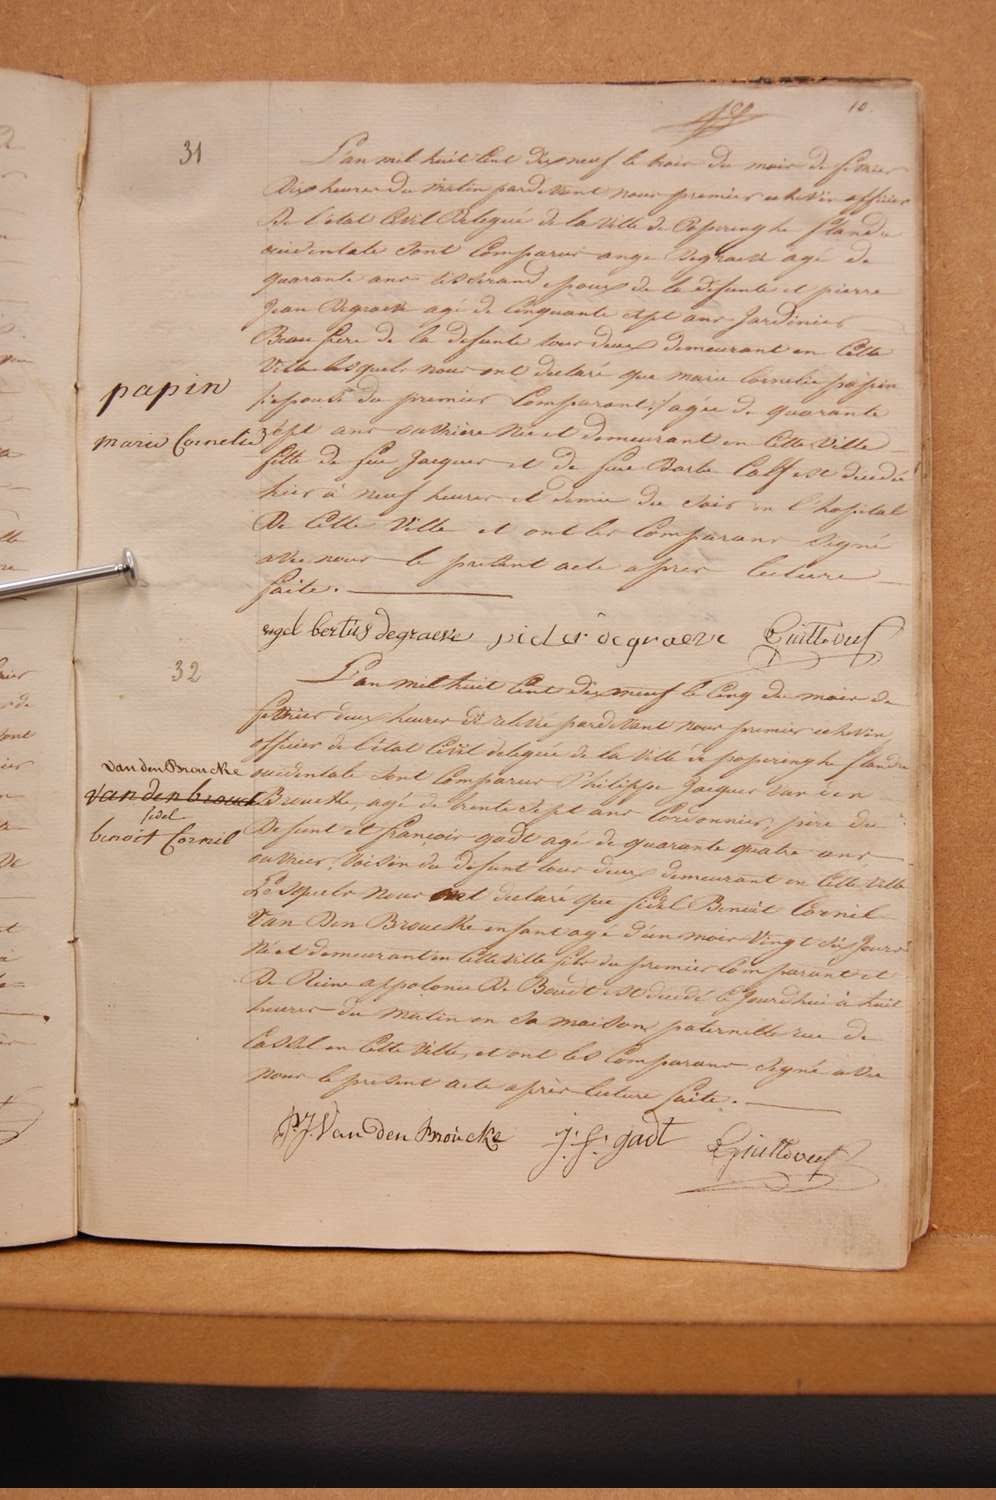 10.
31
L'an mil huit cent dix neuf le trois du mois de fevrier
Dix heures du matin pardevant nous premier echevin officier
De l'état Civil Delegué de la Ville de Poperinghe flandre
occidentale Sont Comparus ange Degraeve agé de
quarante ans tisserand epoux de la defunte et pierre
Jean Degraeve agé de Cinquante sept ans Jardinier
Beau frere de la defunte tous deux demeurant en Cette
Ville lesquels nous ont declaré que marie Cornelie papin
papin
l'epouse du premier Comparant agée de quarante
marie Cornelie
sept ans ouvriere née et demeurant en Cette Ville
fille de feu Jacques et de feue Barbe Calf est decedé
hier à neuf heures et demie du soir en l'hospital
De Cette Ville et ont les Comparans Signé
avec nous le present acte apres lecture
faite.
engel bertus degraeve pieter degraeve
32
L'an mil huit Cent dix neuf le Cinq du mois de
fevrier deux heures de relevée pardevant nous premier echevin
officier de l'état Civil delegué de la Ville de poperinghe flandre
Van den Broucke
occidentale Sont Comparus Philippe Jacques Van den
van den brouck
Broucke, agé de trente Sept ans Cordonnier, père du
fidel
Defunt et françois gadt agé de quarante quatre ans
benoit Cornil
ouvrier, Voisin du defunt tous deux demeurant en Cette Ville
Lesquels nous ont declaré que fidel Benoit Cornil
Van Den Broucke enfant agé d'un mois Vingt six Jours
Né et demeurant en Cette Ville fils du premier Comparant et
De Reine appolonie De Baudt est decedé Ce Jourdhui à huit
heures du Matin en Sa maison paternelle rue de
Cassel en Cette Ville, et ont les Comparans Signé avec
nous le present acte après lecture faite.
P.J. Van den Broucke J. f. gadt